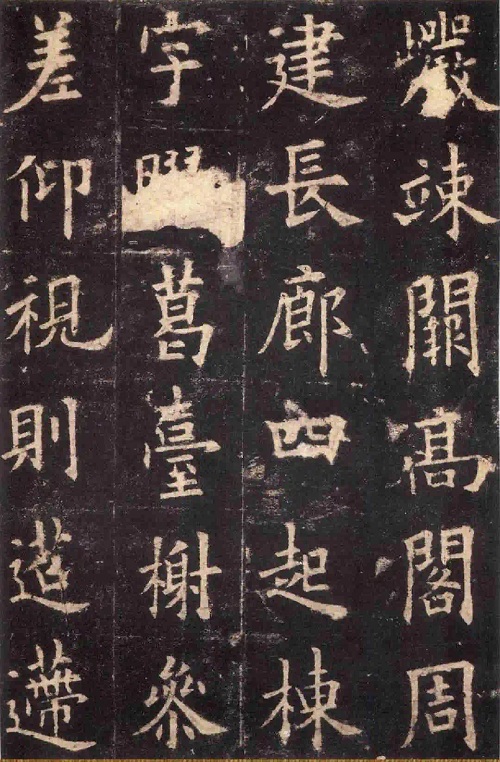 巖竦闕髙閣周
建長廊四起棟
宇膠葛臺榭參
差仰視則迢遰